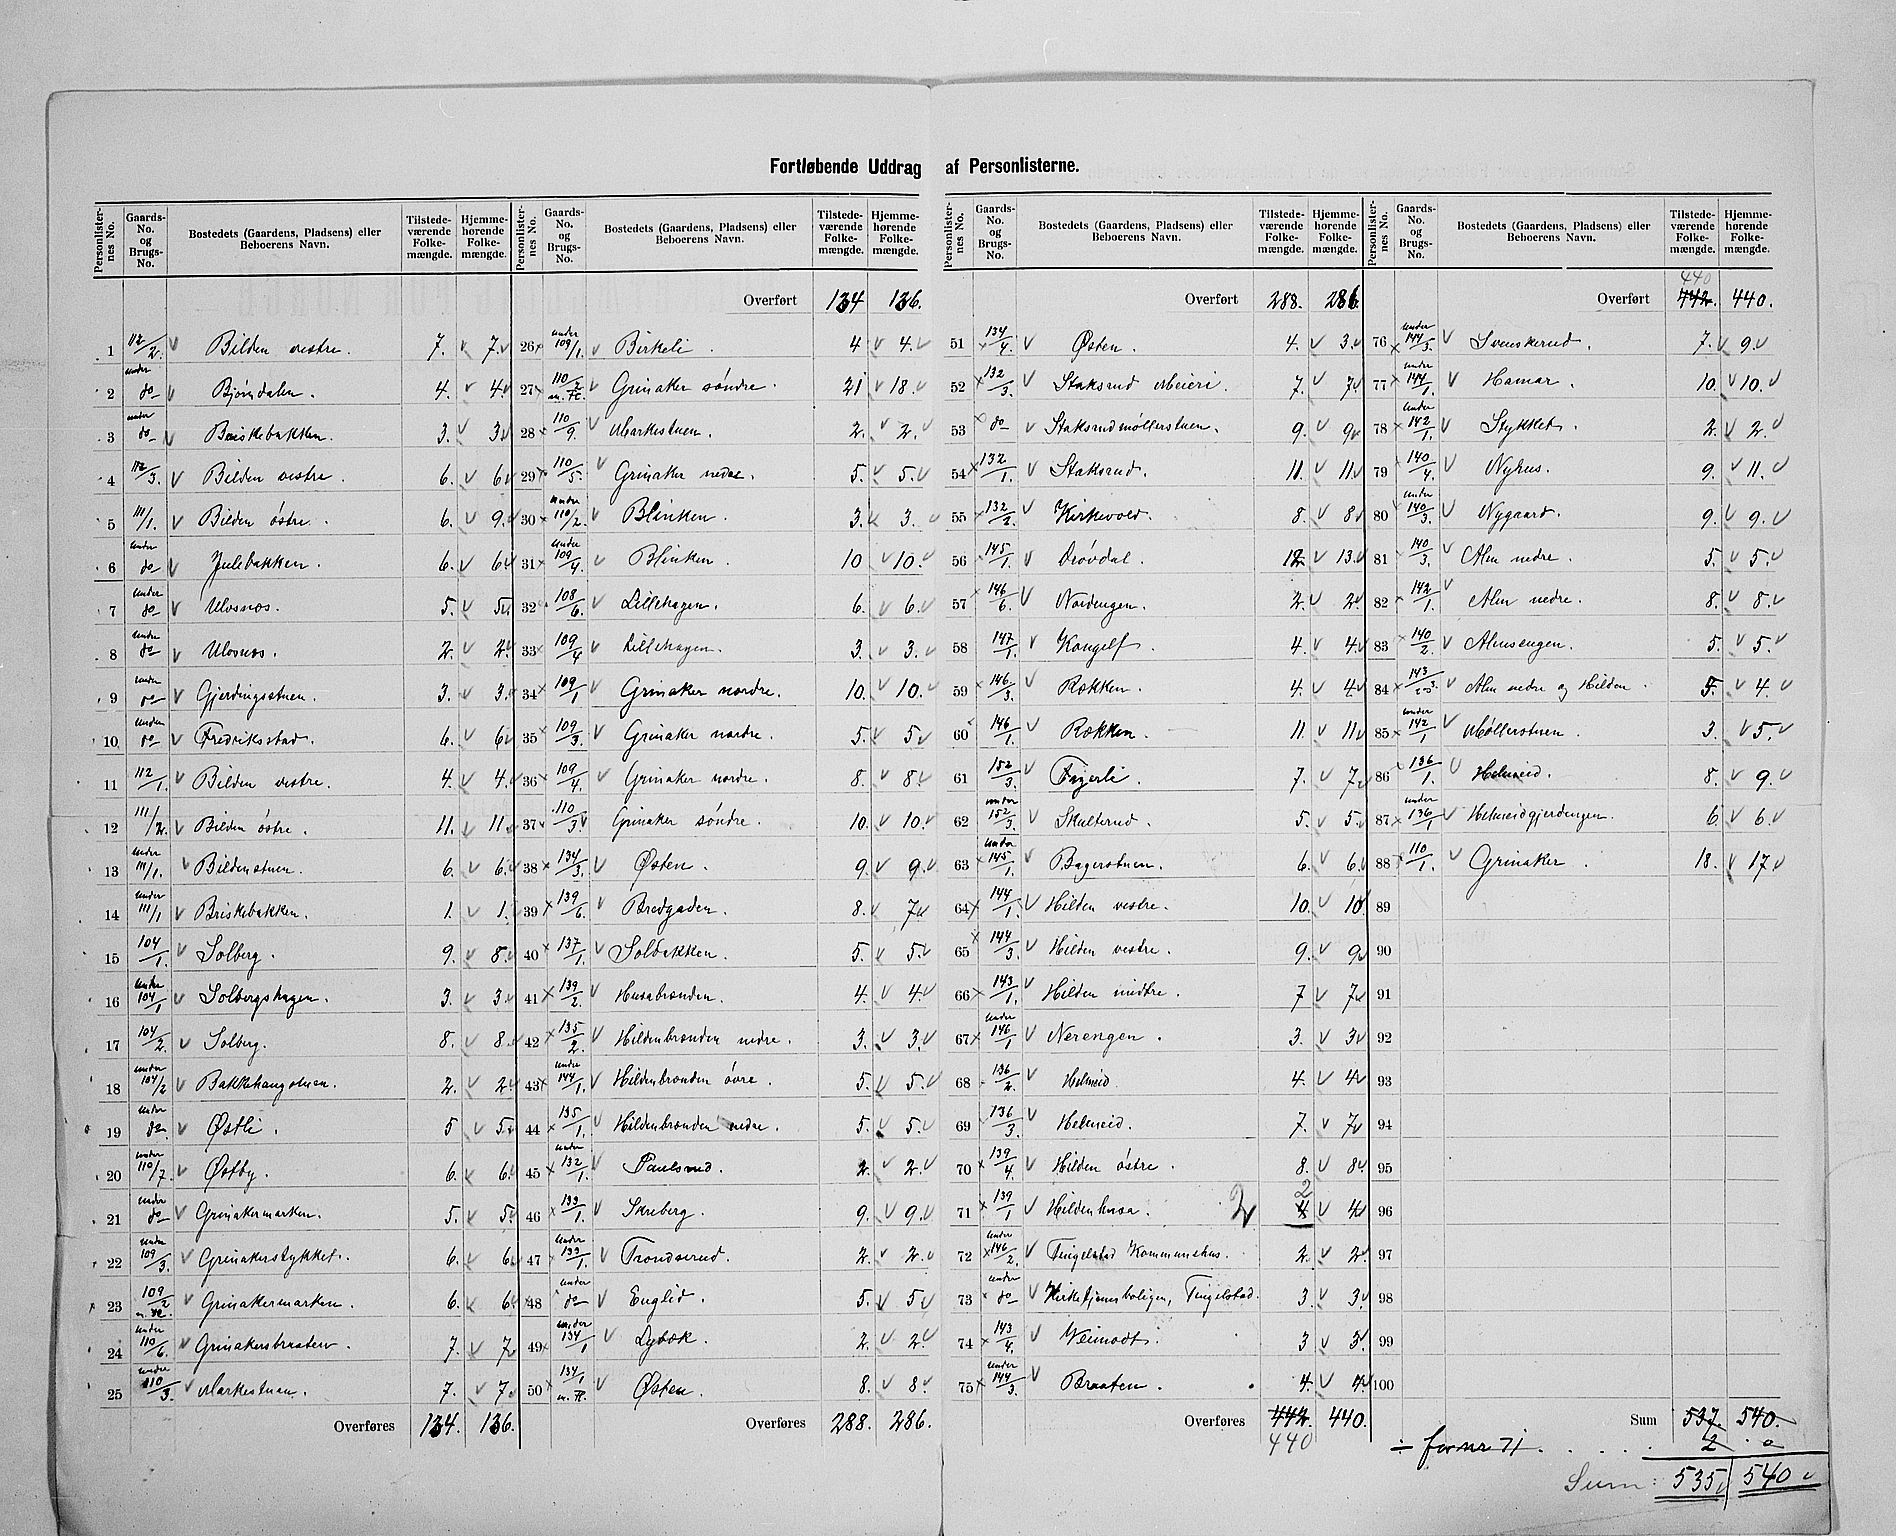 Fortløbende Uddrag af Personlisterne.
Personlisternes No. Gaards-No. og Brugs-No. Bostedets (Gaardens, Pladsens) eller Beboerens Navn. Tilstedeværende Folkemængde. Hjemmehørende Folkemængde.
1 112/2. Bilden vestre. 7. 7.
2 under do Bjørndalen. 4. 4.
3 under do Briskebakken. 3. 3.
4 112/3. Bilden vestre. 6. 6.
5 111/1. Bilden östre. 6. 9.
6 under do Julebakken. 6. 6.
7 under do Mosnes. 5. 5.
8 under do Mosnes. 2. 2.
9 under do Gjerdingsstuen. 3. 3.
10 under do Fredriksstad. 6. 6.
11 112/1. Bilden vestre. 4. 4.
12 111/2. Bilden östre. 11. 11.
13 under 111/1. Bildenstuen. 6. 6.
14 under 111/1 Briskebakken. 1. 1.
15 104/1 Solberg. 9. 8.
16 under 104/1 Solbergshagen. 3. 3.
17 104/2. Solberg. 8. 8.
18 under 104/2 Bakkehaugstuen. 2. 2.
19 under do Østli. 5 5.
20 under 110/7. Østby. 6. 6.
21 under do Grinakermarken. 5. 5.
22 under 109/3. Grinakerstykket. 6. 6.
23 109/2 m. fl. Grinakermarken. 6. 6.
24 under 110/6. Grinakersbraaten. 7. 7.
25 under 110/3. Markestuen. 7. 7.
Overføres 134. 136.
Personlisternes No. Gaards-No. og Brugs-No. Bostedets (Gaardens, Pladsens) eller Beboerens Navn. Tilstedeværende Folkemængde. Hjemmehørende Folkemængde.
Overført 134 136.
26 under 109/1. Birkeli. 4 4.
27 110/2 m. fl. Grinaker söndre. 21 18.
28 110/9. Markestuen. 2. 2.
29 110/5. Grinaker nedre. 5. 5.
30 under 110/2. Blinken. 3. 3.
31 under 109/4. Blinken. 10 10.
32 108/6. Lillehagen. 6. 6.
33 109/4 Lillehagen. 3. 3.
34 109/1 Grinaker nordre. 10. 10.
35 109/3. Grinaker nordre. 5. 5
36 109/4 Grinaker nordre. 8. 8.
37 110/3 Grinaker söndre. 10. 10.
38 134/3. Østen. 9. 9.
39 139/6. Bredgaden. 8. 7
40 137/1. Solbakken. 5. 5.
41 139/2. Husabrænden. 4. 4.
42 135/2. Hildenbrænden nedre. 3. 3.
43 under 144/1. Hildenbrænden övre. 5. 5.
44 135/1. Hildenbrænden nedre. 5. 5.
45 under 132/1. Paulsrud. 2. 2.
46 133/1. Skreberg. 9. 9.
47 under 133/1. Trondserud. 2. 2.
48 under do Englid. 5. 5
49 under 134/1 Lybæk. 2. 2.
50 134/1 m. fl. Østen. 8. 8.
Overføres 288. 286.
Personlisternes No. Gaards-No. og Brugs-No. Bostedets (Gaardens, Pladsens) eller Beboerens Navn. Tilstedeværende Folkemængde. Hjemmehørende Folkemængde.
Overført 288. 286.
51 134/4. Østen. 4. 3.
52 132/3. Staksrud Meieri. 7. 7.
53 do Staksrudmøllerstuen. 9. 9
54 132/1. Staksrud. 11. 11
55 132/2. Kirkevold. 8. 8
56 145/1. Drövdal. 12 13.
57 146/6. Nordengen. 2. 2
58 147/1. Kongelf. 4. 4.
59 146/3. Rækken. 4. 4
60 146/1. Rækken. 11. 11
61 152/3. Fagerli. 7. 7
62 under 152/3. Skulterud. 5. 5.
63 under 145/1. Bagerstuen. 6. 6
64 144/1. Hilden vestre. 10. 10
65 144/3. Hilden vestre. 9. 9
66 143/1. Hilden midtre. 7 7
67 under 146/1 Nerengen. 3. 3
68 136/2. Helmeid. 4. 4
69 136/3. Helmeid. 7. 7
70 139/4. Hilden östre. 8. 8.
71 139/1 Hildenhusa. 2 4 2 4
72 under 146/2. Tingelstad Kommunehus. 2. 2.
73 under do Kirketjenerboligen, Tingelstad. 3. 3.
74 143/4. Weimodt. 3 3.
75 under 144/3. Braaten. 4. 4.
Overføres 442. 440.
440
Personlisternes No. Gaards-No. og Brugs-No. Bostedets (Gaardens, Pladsens) eller Beboerens Navn. Tilstedeværende Folkemængde. Hjemmehørende Folkemængde.
440
Overført 442. 440.
76 under 144/3. Svenskerud. 7. 9.
77 under 144/1. Hamar. 10. 10.
78 under 142/1. Stykket. 2. 2.
79 140/4. Nyhus. 9. 11.
80 under 140/3. Nygaard. 9. 9.
81 140/3. Alm nedre. 5. 5.
82 142/1. Alm nedre. 8. 8.
83 140/2. Almsengen. 5. 5.
84 143/2 Alm nedre og Hilden. 5. 4.
85 under 142/1 Møllerstuen. 3. 5.
86 136/1. Helmeid. 8. 9.
87 under 136/1 Helmeidgjerdingen. 6. 6.
88 110/1. Grinaker. 18. 17
89
90
91
92
93
94
95
96
97
98
99
100
Sum 537. 540.
÷ for nr 71. . . . . . 2 . 0
Sum: 535 540